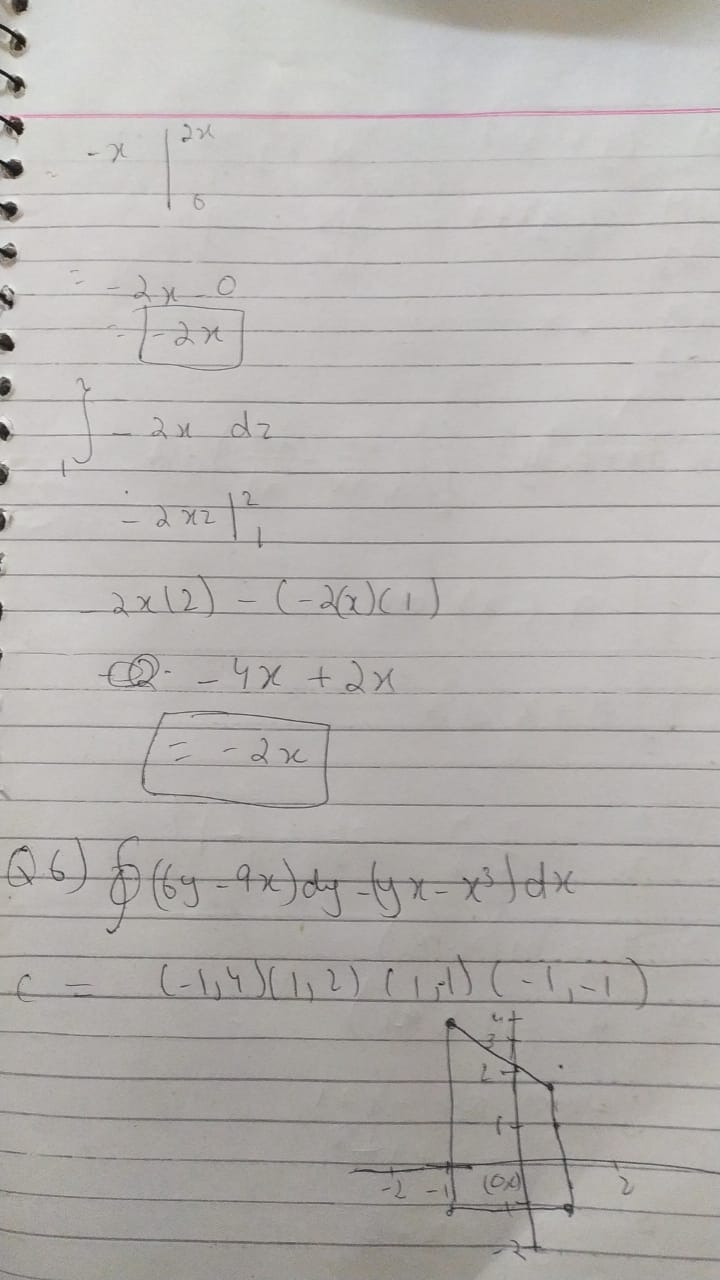 -x | 2x
0
= -2x - 0
= -2x
∫ 2
- 2x dz
1
- 2xz | 2
1
-2x(2) - (-2(x)(1)
- 4x + 2x
= -2x
Q6) ∮(6y - 9x)dy - (yx - x³)dx
c = (-1,4)(1,2) (1,-1) (-1,-1)
4
3
2
1
-2 -1 2
-2